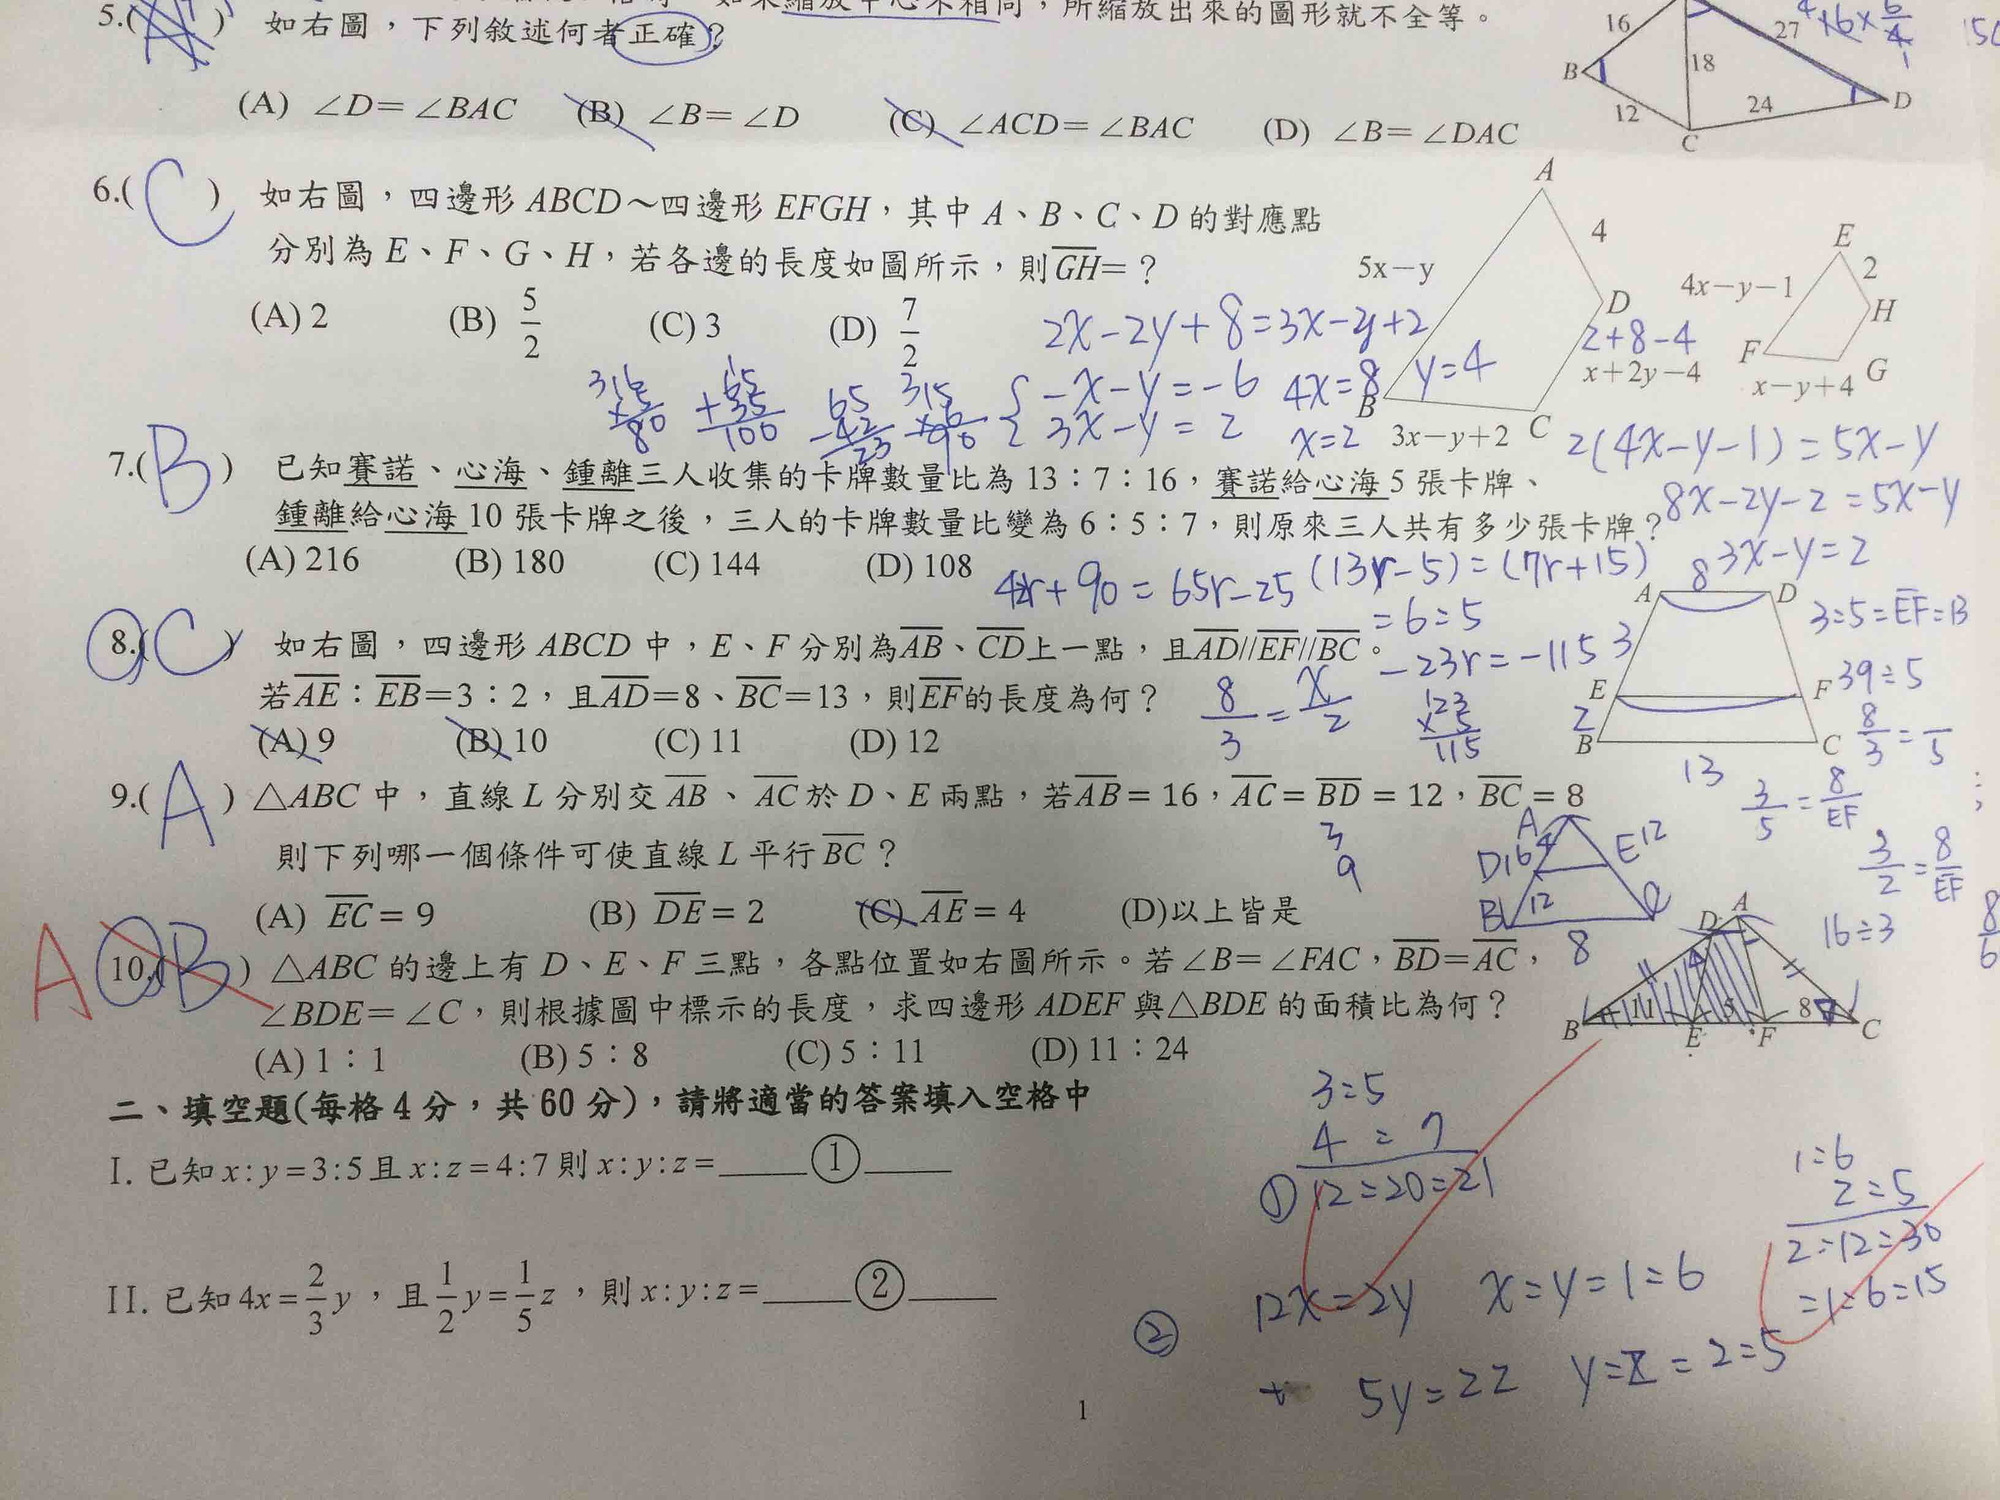 如果縮放中心不相同，所縮放出來的圖形就不全等。
5.( ) 如右圖，下列敘述何者正確？
(A) ∠D＝∠BAC (B) ∠B＝∠D (C) ∠ACD＝∠BAC (D) ∠B＝∠DAC
16 27 18 12 24 B C D
6.( C ) 如右圖，四邊形 ABCD～四邊形 EFGH，其中 A、B、C、D 的對應點
分別為 E、F、G、H，若各邊的長度如圖所示，則GH＝？
(A) 2 (B) 5/2 (C) 3 (D) 7/2
A 4 5x－y D x＋2y－4 B 3x－y＋2 C
E 2 4x－y－1 H F x－y＋4 G
2x－2y＋8＝3x－y＋2
2＋8－4
－x－y＝－6
3x－y＝2
4x＝8 y＝4
x＝2
2(4x－y－1)＝5x－y
8x－2y－2＝5x－y
3x－y＝2
7.( B ) 已知賽諾、心海、鍾離三人收集的卡牌數量比為 13：7：16，賽諾給心海 5 張卡牌、
鍾離給心海 10 張卡牌之後，三人的卡牌數量比變為 6：5：7，則原來三人共有多少張卡牌？
(A) 216 (B) 180 (C) 144 (D) 108
42r＋90＝65r－25 (13r－5)：(7r＋15)
＝6：5
－23r＝－115
8.( C ) 如右圖，四邊形 ABCD 中，E、F 分別為AB、CD上一點，且AD//EF//BC。
若AE：EB＝3：2，且AD＝8、BC＝13，則EF的長度為何？
(A) 9 (B) 10 (C) 11 (D) 12
8/3＝x/2
A 8 D 3 E F 2 B C 13
39÷5
3/5＝8/EF
3/2＝8/EF
16÷3
9.( A ) △ABC 中，直線 L 分別交 AB、AC於 D、E 兩點，若AB＝16，AC＝BD＝12，BC＝8
則下列哪一個條件可使直線 L 平行BC？
(A) EC＝9 (B) DE＝2 (C) AE＝4 (D)以上皆是
3
9
A 4 D 16 E 12 B 12 8
A 10.( B ) △ABC 的邊上有 D、E、F 三點，各點位置如右圖所示。若∠B＝∠FAC，BD＝AC，
∠BDE＝∠C，則根據圖中標示的長度，求四邊形 ADEF 與△BDE 的面積比為何？
(A) 1：1 (B) 5：8 (C) 5：11 (D) 11：24
D A B 11 E 5 F 8 C
二、填空題(每格 4 分，共 60 分)，請將適當的答案填入空格中
I. 已知 x:y＝3:5 且 x:z＝4:7 則 x:y:z＝_____①_____
3：5
4：7
① 12：20：21
II. 已知 4x＝2/3 y，且 1/2 y＝1/5 z，則 x:y:z＝_____②_____
② 12x＝2y x：y＝1：6
5y＝2z y：z＝2：5
1：6
2：5
2：12：30
＝1：6：15
1